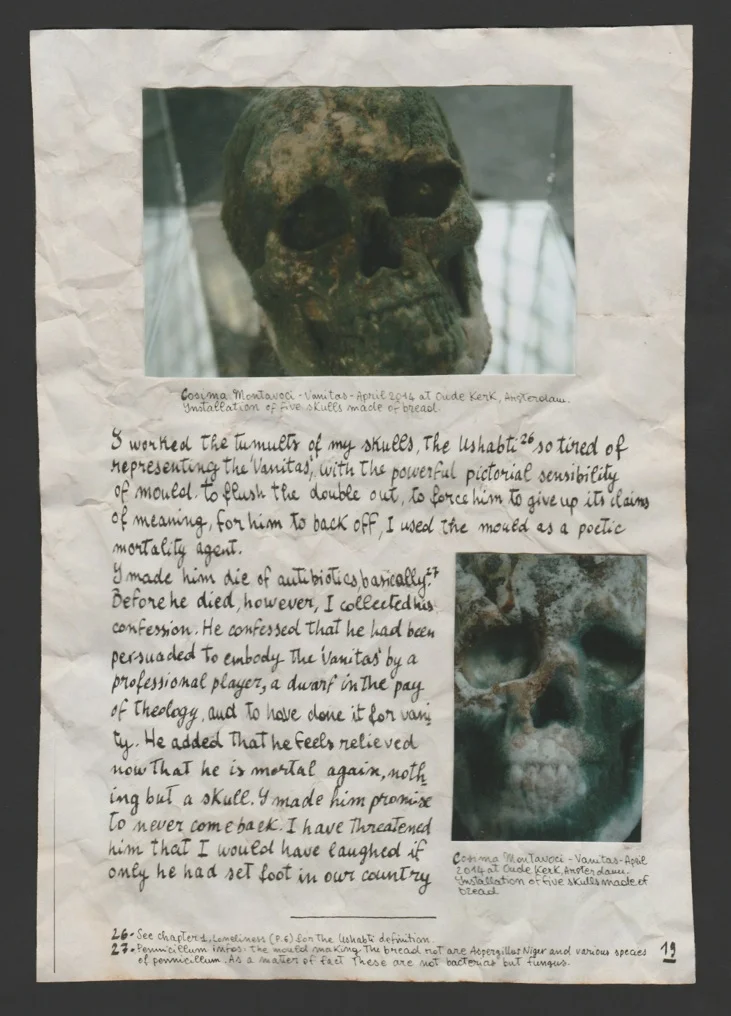 Cosima Montavoci - Vanitas - April 2014 at Oude Kerk, Amsterdam.
Installation of five skulls made of bread.
I worked the tumults of my skulls, the Ushabti²⁶ so tired of
representing the 'Vanitas', with the powerful pictorial sensibility
of mould. to flush the double out, to force him to give up its claims
of meaning, for him to back off, I used the mould as a poetic
mortality agent.
I made him die of antibiotics, basically.²⁷
Before he died, however, I collected his
confession. He confessed that he had been
persuaded to embody the 'Vanitas' by a
professional player, a dwarf in the pay
of theology, and to have done it for vani
ty. He added that he feels relieved
now that he is mortal again, noth
ing but a skull. I made him promise
to never come back. I have threatened
him that I would have laughed if
only he had set foot in our country
Cosima Montavoci - Vanitas - April
2014 at Oude Kerk, Amsterdam.
Installation of five skulls made of
bread.
26- See chapter 1, Loneliness (P.6) for the Ushabti definition.
27- Pennicillum infos: the mould making the bread rot are Aspergillus Niger and various species
of pennicillum. As a matter of fact these are not bacterias but fungus.
19